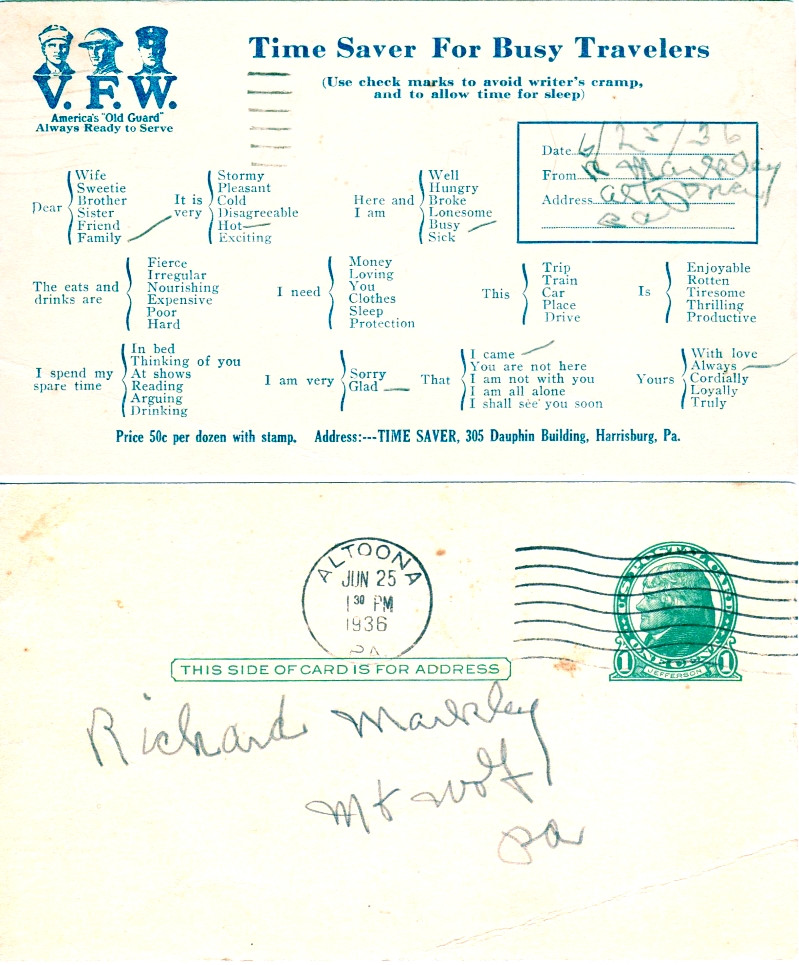 V. F. W.
America's "Old Guard"
Always Ready to Serve
Time Saver For Busy Travelers
(Use check marks to avoid writer's cramp,
and to allow time for sleep)
Date 6/25/36
From R Markley
Address Altoona
Pa
Dear
Wife
Sweetie
Brother
Sister
Friend
Family
It is
very
Stormy
Pleasant
Cold
Disagreeable
Hot
Exciting
Here and
I am
Well
Hungry
Broke
Lonesome
Busy
Sick
The eats and
drinks are
Fierce
Irregular
Nourishing
Expensive
Poor
Hard
I need
Money
Loving
You
Clothes
Sleep
Protection
This
Trip
Train
Car
Place
Drive
Is
Enjoyable
Rotten
Tiresome
Thrilling
Productive
I spend my
spare time
In bed
Thinking of you
At shows
Reading
Arguing
Drinking
I am very
Sorry
Glad
That
I came
You are not here
I am not with you
I am all alone
I shall see you soon
Yours
With love
Always
Cordially
Loyally
Truly
Price 50c per dozen with stamp. Address:---TIME SAVER, 305 Dauphin Building, Harrisburg, Pa.
ALTOONA
JUN 25
1 30 PM
1936
PA.
U.S. POSTAL CARD
ONE CENT
1 JEFFERSON 1
THIS SIDE OF CARD IS FOR ADDRESS
Richard Markley
Mt Wolf
Pa